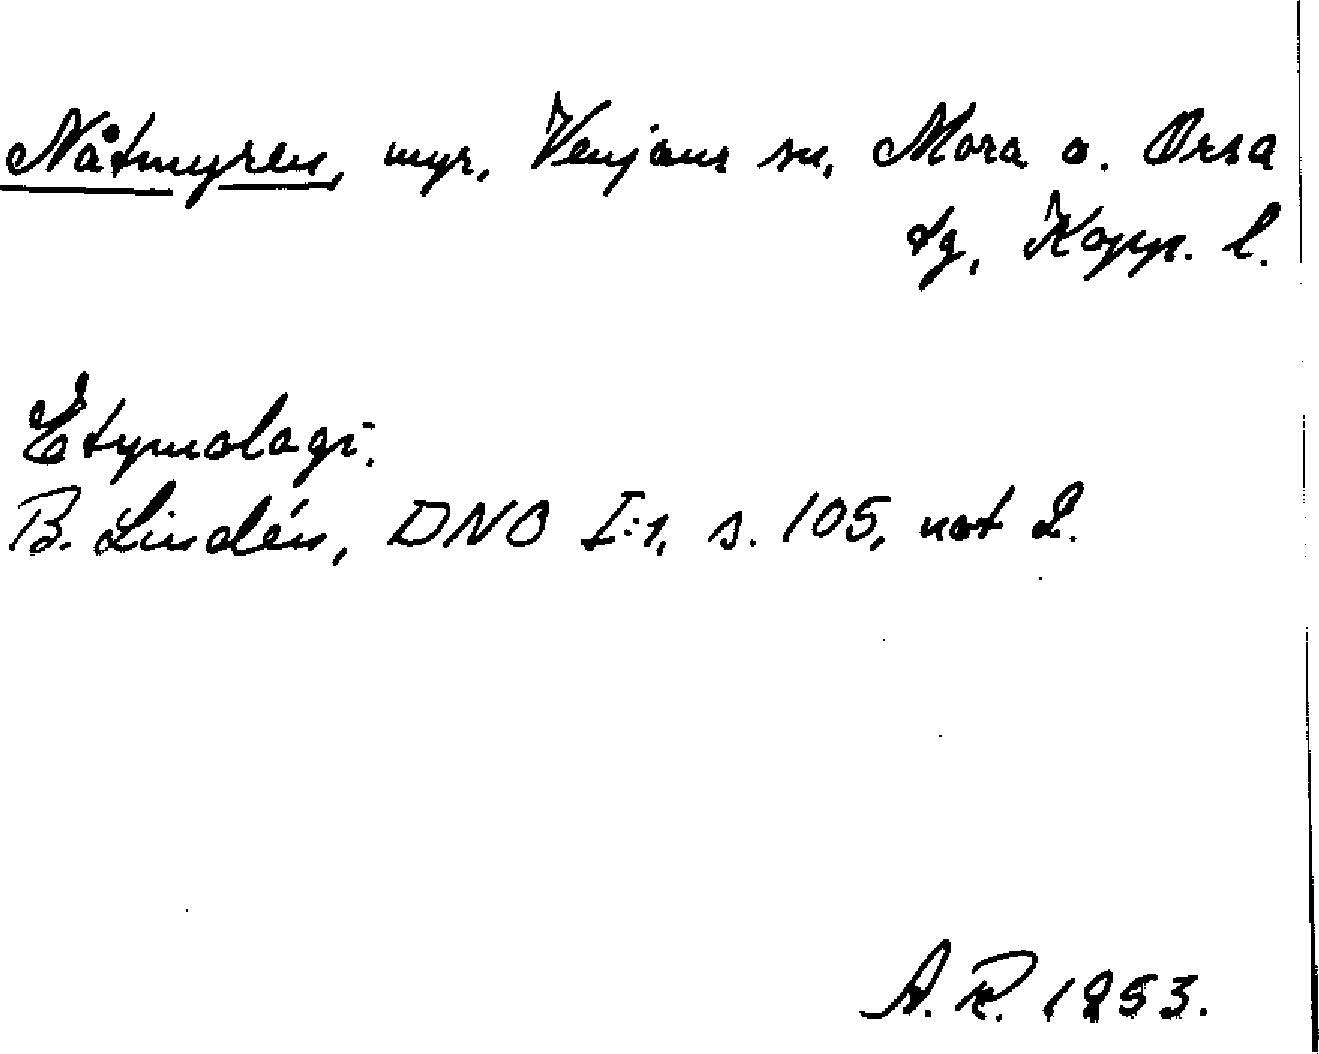 Nåtmyren, myr, Venjans sn, Mora o. Orsa
tg, Kopp. l.
Etymologi:
B. Lindén, DNO I:1, s. 105, not 2.
A. R. 1953.